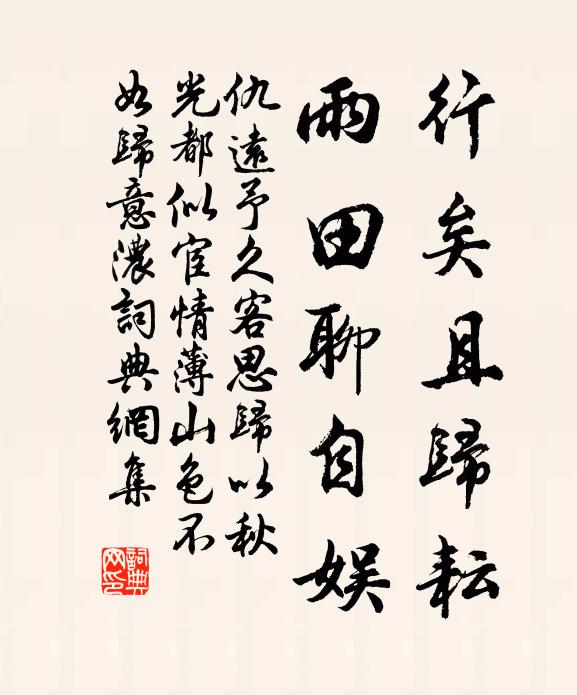 行矣且歸耘
雨田聊自娛
仇遠予久客思歸以秋
光都似宦情薄山色不
如歸意濃詞典網集
詞典
网印